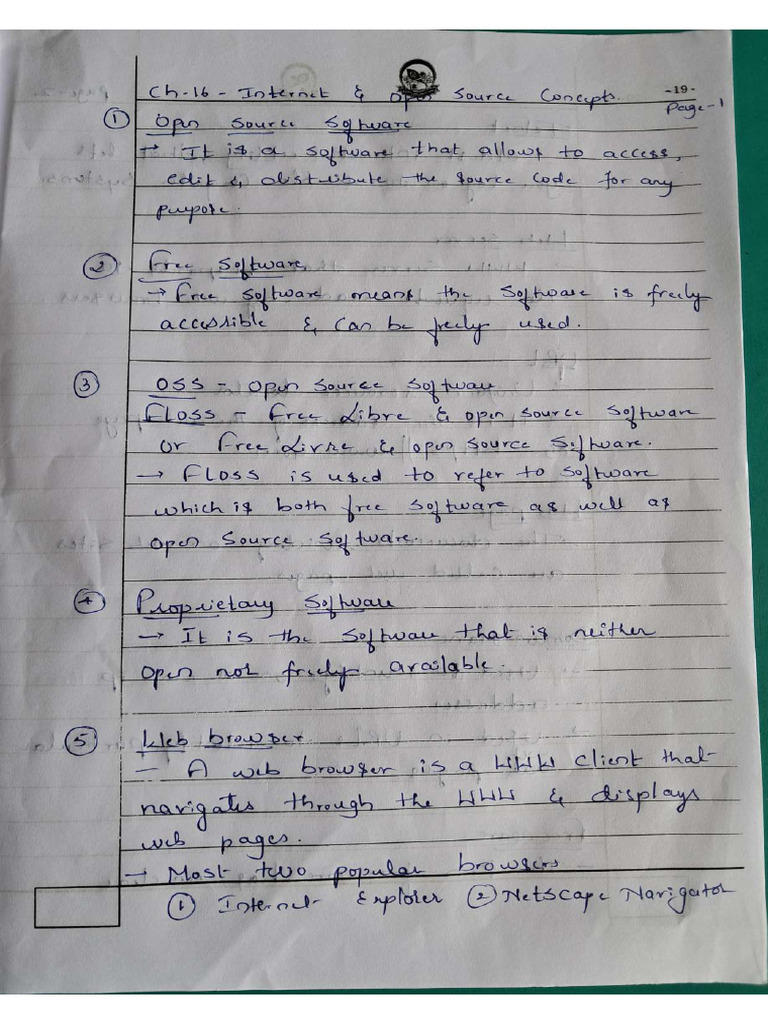 Ch-16 - Internet & Open Source Concepts. -19-
Page-1
① Open Source Software
→ It is a software that allows to access,
edit & distribute the source code for any
purpose.
② Free Software
→ Free software means the software is freely
accessible & can be freely used.
③ OSS - Open Source Software
FLOSS - Free Libre & open source software
or Free Livre & open source software.
→ FLOSS is used to refer to software
which is both free software as well as
open source software.
④ Proprietary Software
→ It is the software that is neither
open not freely available.
⑤ Web browser
- A web browser is a WWW client that
navigates through the WWW & displays
web pages.
→ Most two popular browsers
① Internet Explorer ② Netscape Navigator